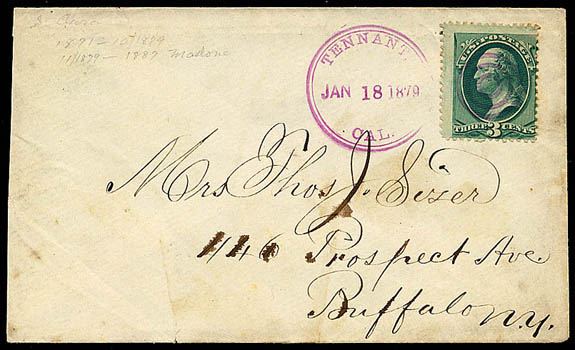 1871 - 10
11/1879 - 1887 Madone
TENNANT
JAN 18 1879
CAL.
U.S. POSTAGE
THREE 3 CENTS
Mrs Thos J. Sizer
146 Prospect Ave.
Buffalo N.Y.